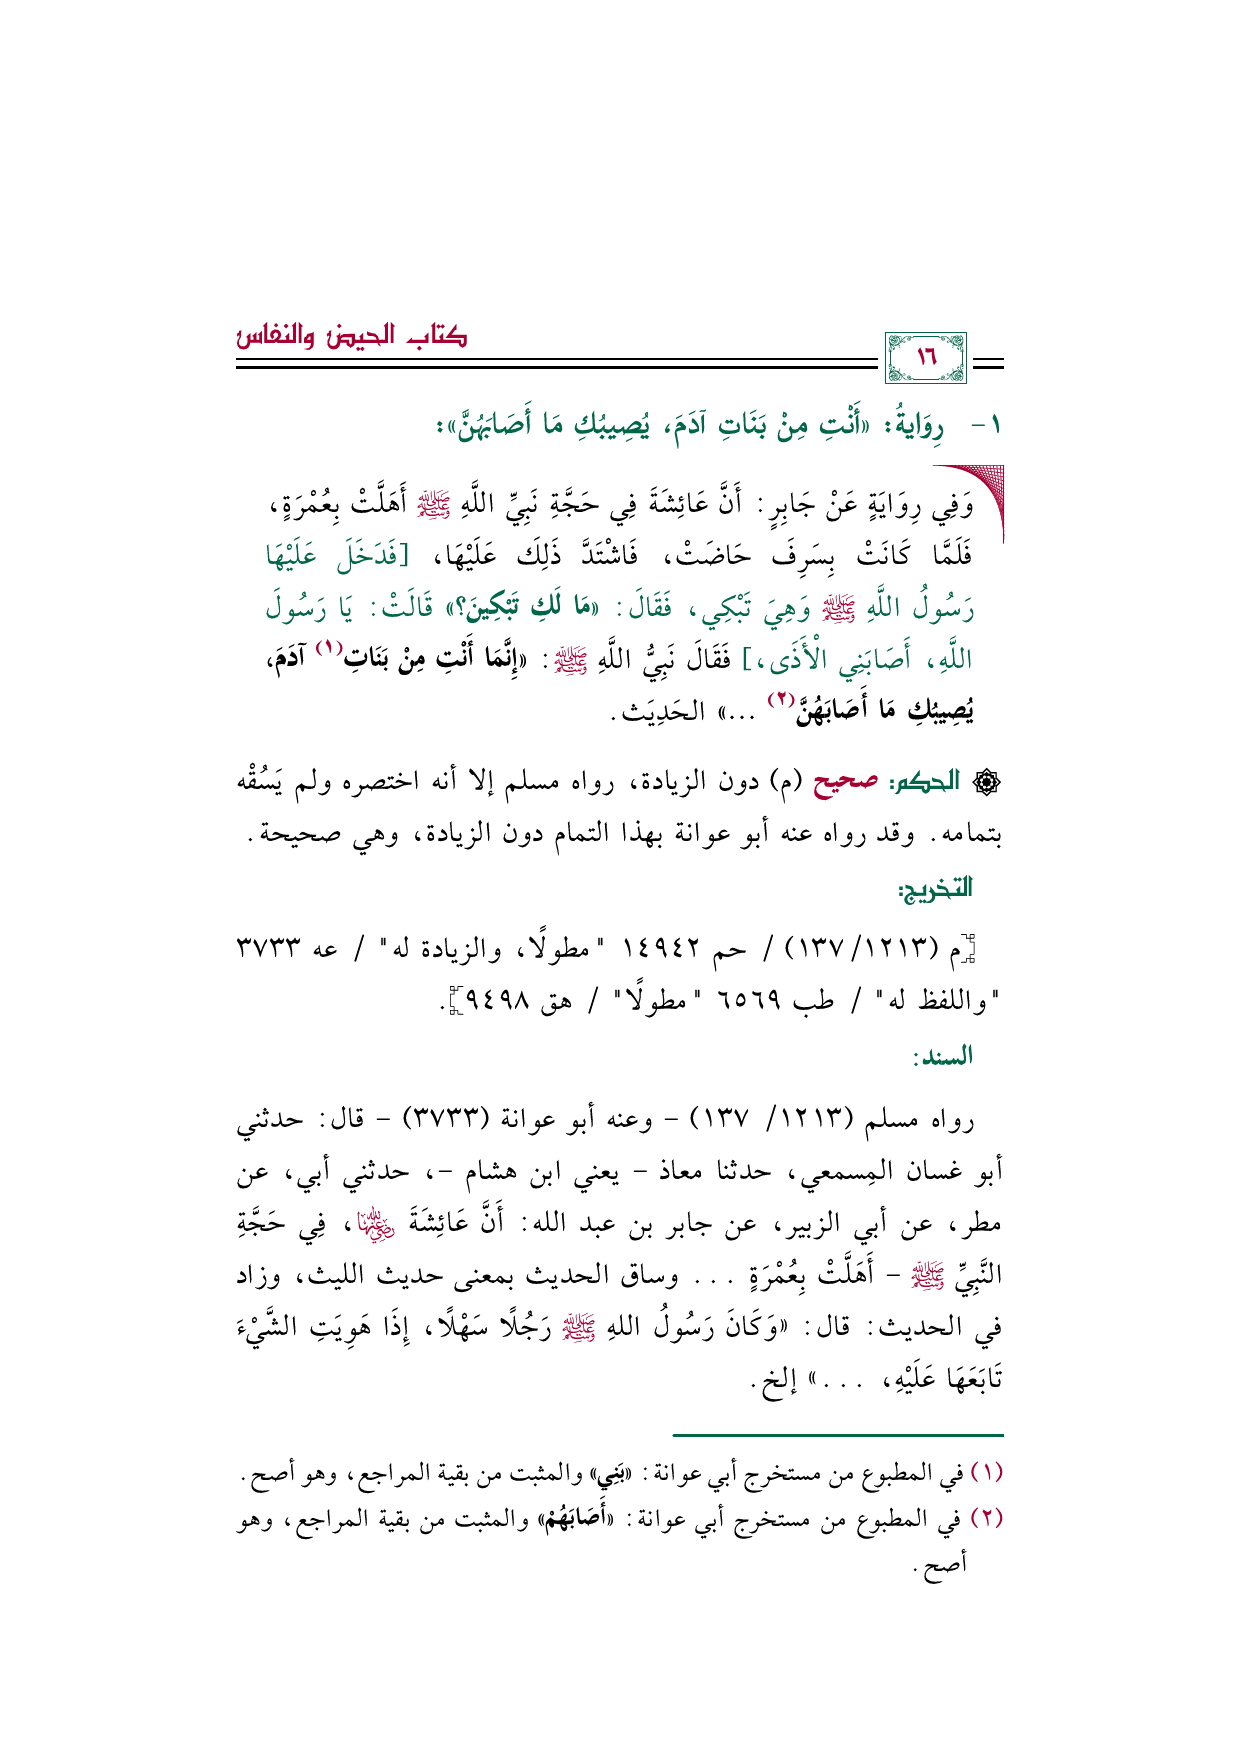 كتاب الحيض والنفاس
١٦
١- رِوَايةُ: «أَنْتِ مِنْ بَنَاتِ آدَمَ، يُصِيبُكِ مَا أَصَابَهُنَّ»:
وَفِي رِوَايَةٍ عَنْ جَابِرٍ: أَنَّ عَائِشَةَ فِي حَجَّةِ نَبِيِّ اللَّهِ ﷺ أَهَلَّتْ بِعُمْرَةٍ،
فَلَمَّا كَانَتْ بِسَرِفَ حَاضَتْ، فَاشْتَدَّ ذَلِكَ عَلَيْهَا، [فَدَخَلَ عَلَيْهَا
رَسُولُ اللَّهِ ﷺ وَهِيَ تَبْكِي، فَقَالَ: «مَا لَكِ تَبْكِينَ؟» قَالَتْ: يَا رَسُولَ
اللَّهِ، أَصَابَنِي الْأَذَى،] فَقَالَ نَبِيُّ اللَّهِ ﷺ: «إِنَّمَا أَنْتِ مِنْ بَنَاتِ(١) آدَمَ،
يُصِيبُكِ مَا أَصَابَهُنَّ(٢) ...» الحَدِيَث.
الحكم: صحيح (م) دون الزيادة، رواه مسلم إلا أنه اختصره ولم يَسُقْه
بتمامه. وقد رواه عنه أبو عوانة بهذا التمام دون الزيادة، وهي صحيحة.
التخريج:
[م (١٢١٣/ ١٣٧) / حم ١٤٩٤٢ "مطولًا، والزيادة له" / عه ٣٧٣٣
"واللفظ له" / طب ٦٥٦٩ "مطولًا" / هق ٩٤٩٨].
السند:
رواه مسلم (١٢١٣/ ١٣٧) - وعنه أبو عوانة (٣٧٣٣) - قال: حدثني
أبو غسان المِسمعي، حدثنا معاذ - يعني ابن هشام -، حدثني أبي، عن
مطر، عن أبي الزبير، عن جابر بن عبد الله: أَنَّ عَائِشَةَ رضي الله عنها، فِي حَجَّةِ
النَّبِيِّ ﷺ - أَهَلَّتْ بِعُمْرَةٍ ... وساق الحديث بمعنى حديث الليث، وزاد
في الحديث: قال: «وَكَانَ رَسُولُ اللهِ ﷺ رَجُلًا سَهْلًا، إِذَا هَوِيَتِ الشَّيْءَ
تَابَعَهَا عَلَيْهِ، ...» إلخ.
(١) في المطبوع من مستخرج أبي عوانة: «بَنِي» والمثبت من بقية المراجع، وهو أصح.
(٢) في المطبوع من مستخرج أبي عوانة: «أَصَابَهُمْ» والمثبت من بقية المراجع، وهو
أصح.